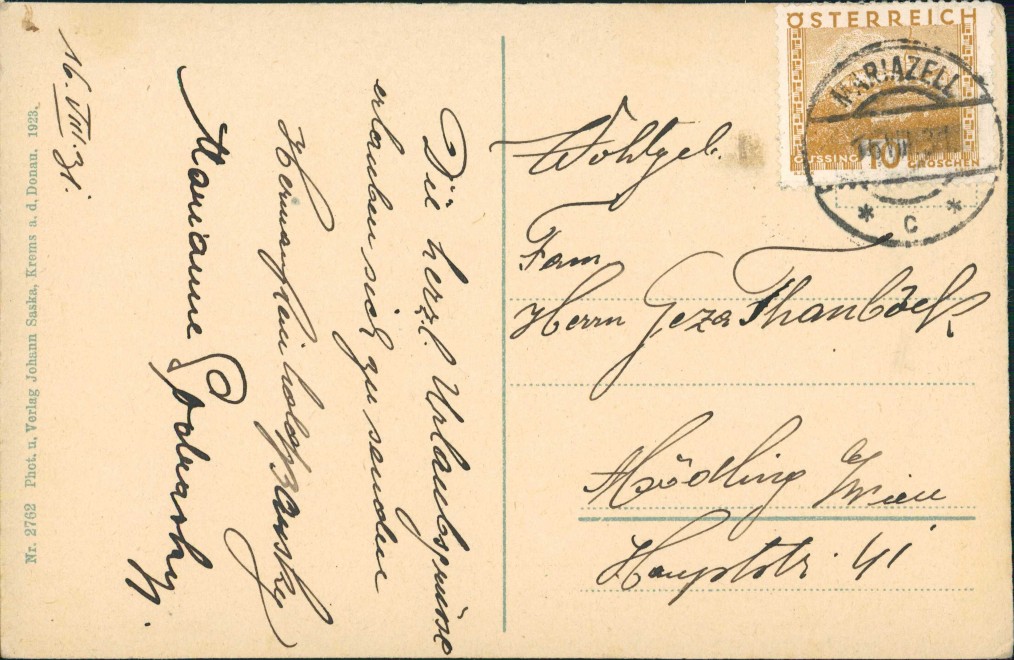 ÖSTERREICH
GÜSSING 10 GROSCHEN
MARIAZELL
* C *
16. VIII. 31.
Die herzl. Urlaubsgrüsse
erlauben sich zu senden
Marianne
Wohlgeb.
Fam.
Herrn Geza
Mödling b/Wien
Hauptstr. 41
Nr. 2762 Phot. u. Verlag Johann Saska, Krems a. d. Donau. 1923.